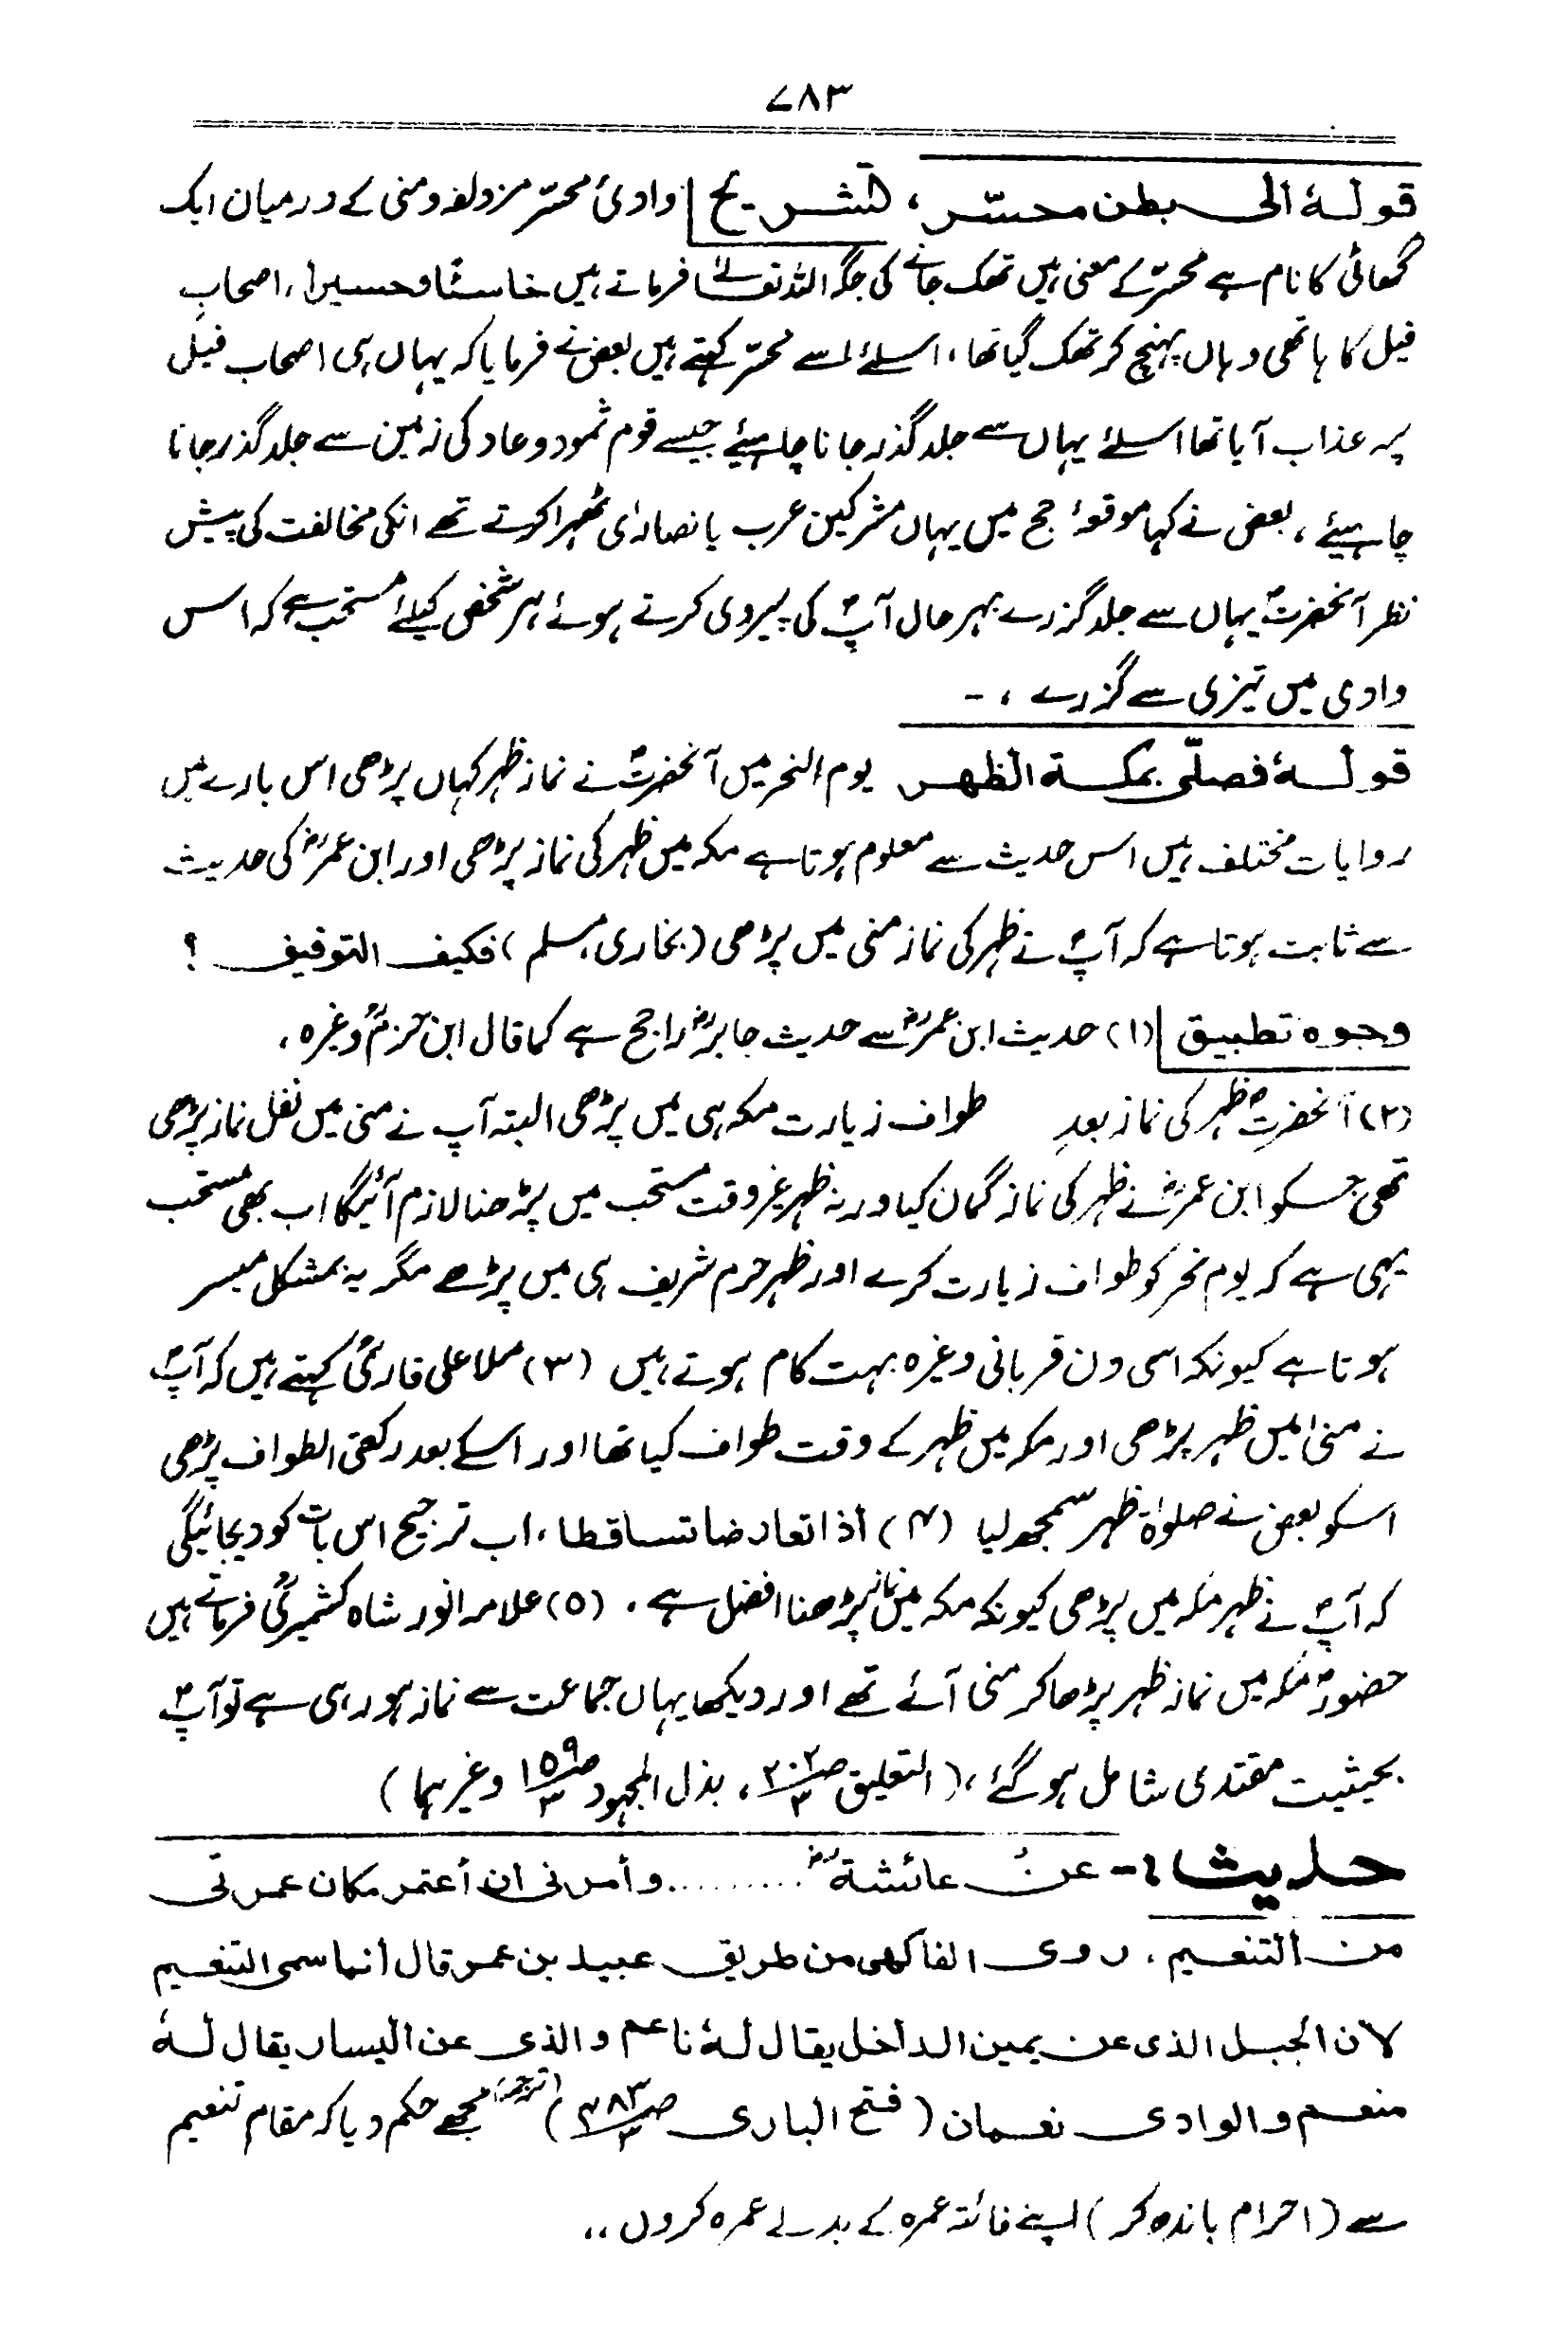 ۷۸۳
قولہٗ الی بطن محسّر، تشریح وادیٔ محسّر مزدلفہ ومنی کے درمیان ایک
گھاٹی کا نام ہے محسّر کے معنی ہیں تھک جانے کی جگہ اللہ تعالےٰ فرماتے ہیں خاسئًا وحسیرا، اصحابِ
فیل کا ہاتھی وہاں پہنچ کر تھک گیا تھا، اسلئے اسے محسّر کہتے ہیں بعض نے فرمایا کہ یہاں ہی اصحاب فیل
پہ عذاب آیا تھا اسلئے یہاں سے جلد گذر جانا چاہیئے جیسے قوم ثمود وعاد کی زمین سے جلد گذر جانا
چاہیئے، بعض نے کہا موقعۂ حج میں یہاں مشرکین عرب یا نصارٰی ٹھہرا کرتے تھے انکی مخالفت کی پیش
نظر آنحضرتؐ یہاں سے جلد گزرے بہر حال آپؐ کی پیروی کرتے ہوئے ہر شخص کیلئے مستحب ہے کہ اس
وادی میں تیزی سے گزرے، -
قولہٗ فصلّی بمکۃ الظھر یوم النحر میں آنحضرتؐ نے نماز ظہر کہاں پڑھی اس بارے میں
روایات مختلف ہیں اس حدیث سے معلوم ہوتا ہے مکہ میں ظہر کی نماز پڑھی اور ابن عمرؓ کی حدیث
سے ثابت ہوتا ہے کہ آپؐ نے ظہر کی نماز منی میں پڑھی (بخاری، مسلم) فکیف التوفیق ؟
وجوہ تطبیق (۱) حدیث ابن عمرؓ سے حدیث جابرؓ راجح ہے کما قال ابن حزمؒ وغرہ،
(۲) آنحضرتؐ ظہر کی نماز بعدِ طواف زیارت مکہ ہی میں پڑھی البتہ آپ نے منی میں نفل نماز پڑھی
تھی جسکو ابن عمرؓ نے ظہر کی نماز گمان کیا ورنہ ظہر غیر وقت مستحب میں پڑھنا لازم آئیگا اب بھی مستحب
یہی ہے کہ یوم نحر کو طواف زیارت کرے اور ظہر حرم شریف ہی میں پڑھے مگر یہ بمشکل میسر
ہوتا ہے کیونکہ اسی دن قربانی وغیرہ بہت کام ہوتے ہیں (۳) ملا علی قاریؒ کہتے ہیں کہ آپؐ
نے منیٰ میں ظہر پڑھی اور مکہ میں ظہر کے وقت طواف کیا تھا اور اسکے بعد رکعتی الطواف پڑھی
اسکو بعض نے صلوٰۃ ظہر سمجھ لیا (۴) أذا تعارضا تساقطا، اب ترجیح اس بات کو دیجائیگی
کہ آپؐ نے ظہر مکہ میں پڑھی کیونکہ مکہ میں نماز پڑھنا افضل ہے، (۵) علامہ انور شاہ کشمیریؒ فرماتے ہیں
حضورؐ مکہ میں نماز ظہر پڑھا کر منی آئے تھے اور دیکھا یہاں جماعت سے نماز ہو رہی ہے تو آپؐ
بحیثیت مقتدی شامل ہو گئے، (التعلیق ص۲۰۲/۳، بذل المجہود ص۱۵۹/۳ وغیرہما)
حدیث:- عن عائشۃؓ .......... وأمرنی ان أعتمر مکان عمرتی
من التنعیم، روی الفاکھی من طریق عبید بن عمر قال أنما سمی التنعیم
لان الجبل الذی عن یمین الداخل یقال لہٗ ناعم والذی عن الیسار یقال لہٗ
منعم والوادی نعمان (فتح الباری ص۴۸۳/۳) (ترجمہ) مجھے حکم دیا کہ مقام تنعیم
سے (احرام باندھ کر) اپنے فائتہ عمرہ کے بدلے عمرہ کروں،،